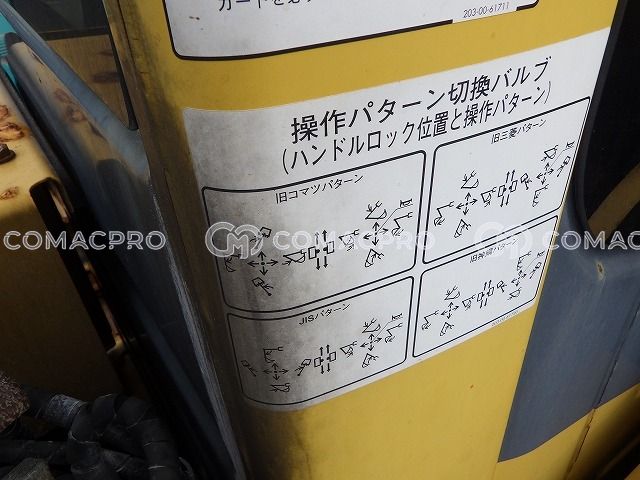 ガードを必ず
203-00-61711
操作パターン切換バルブ
(ハンドルロック位置と操作パターン)
旧コマツパターン
旧三菱パターン
JISパターン
旧神鋼パターン
COMACPRO
COMACPRO
COMACPRO